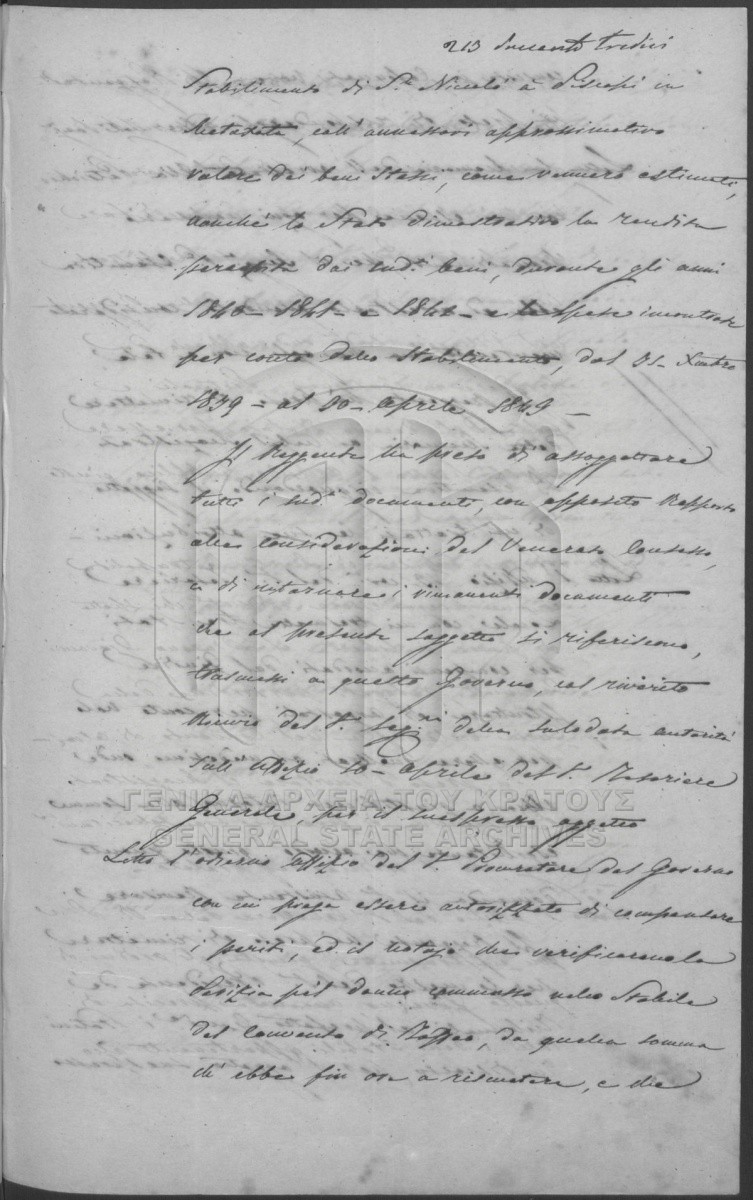 213 duecento tredici
Stabilimento di Sn. Nicolò a
Metaxata, coll' annessovi approssimativo
valore dei beni stessi, come vennero estimati,
nonché lo Stato dimostrativo la rendita
percepita dai sudi. beni, durante gli anni
1840 - 1841 - e 1842 - e le spese incontrate
per conto dello Stabilimento, dal 31 - Xmbre
1839 = al 30 - Aprile 1843 -
Il Reggente ha preso di assoggettare
tutti i sudi. documenti, con apposito Rapporto
alla considerazione del Venerato Consesso,
e di ritornare i rimanenti documenti
che al presente soggetto si riferiscono,
trasmessi a questo Governo, col riverito
Rinvio del S. Segrio. della salodata autorità
sull' Offizio 10 - Aprile del S. Tesoriere
Generale, per il suespresso oggetto
ΓΕΝΙΚΑ ΑΡΧΕΙΑ ΤΟΥ ΚΡΑΤΟΥΣ
GENERAL STATE ARCHIVES
Letto l'odierno Uffizio del S. Procuratore del Governo
con cui prega essere autorizzato di compensare
i periti, ed il notajo che verificarono la
Perizia pel danno commesso nello Stabile
del Convento di, da quella somma
ch' ebbe fin ora a rismetere, e che